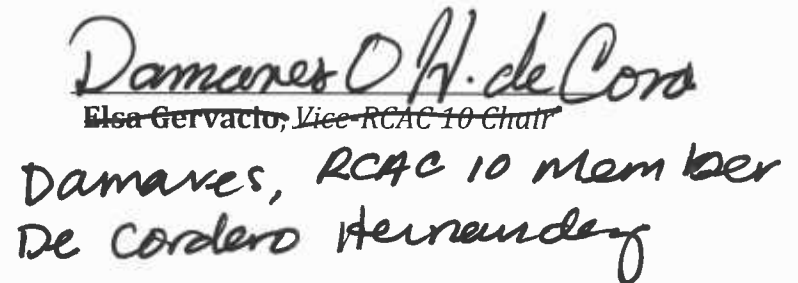 Damares O H. de Cord
Elsa Gervacio, Vice-RCAC 10 Chair
Damares, RCAC 10 Member
De Cordero Hernandez